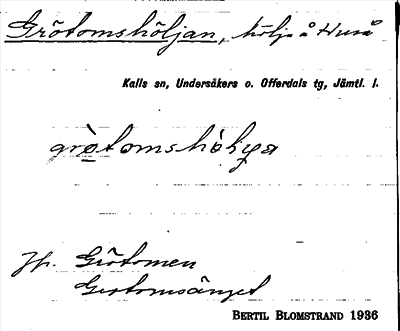 Grötomshöljan, hölja å Huså
Kalls sn, Undersåkers o. Offerdals tg, Jämtl. l.
Jfr. Grötomen
Grötomsänget
BERTIL BLOMSTRAND 1936